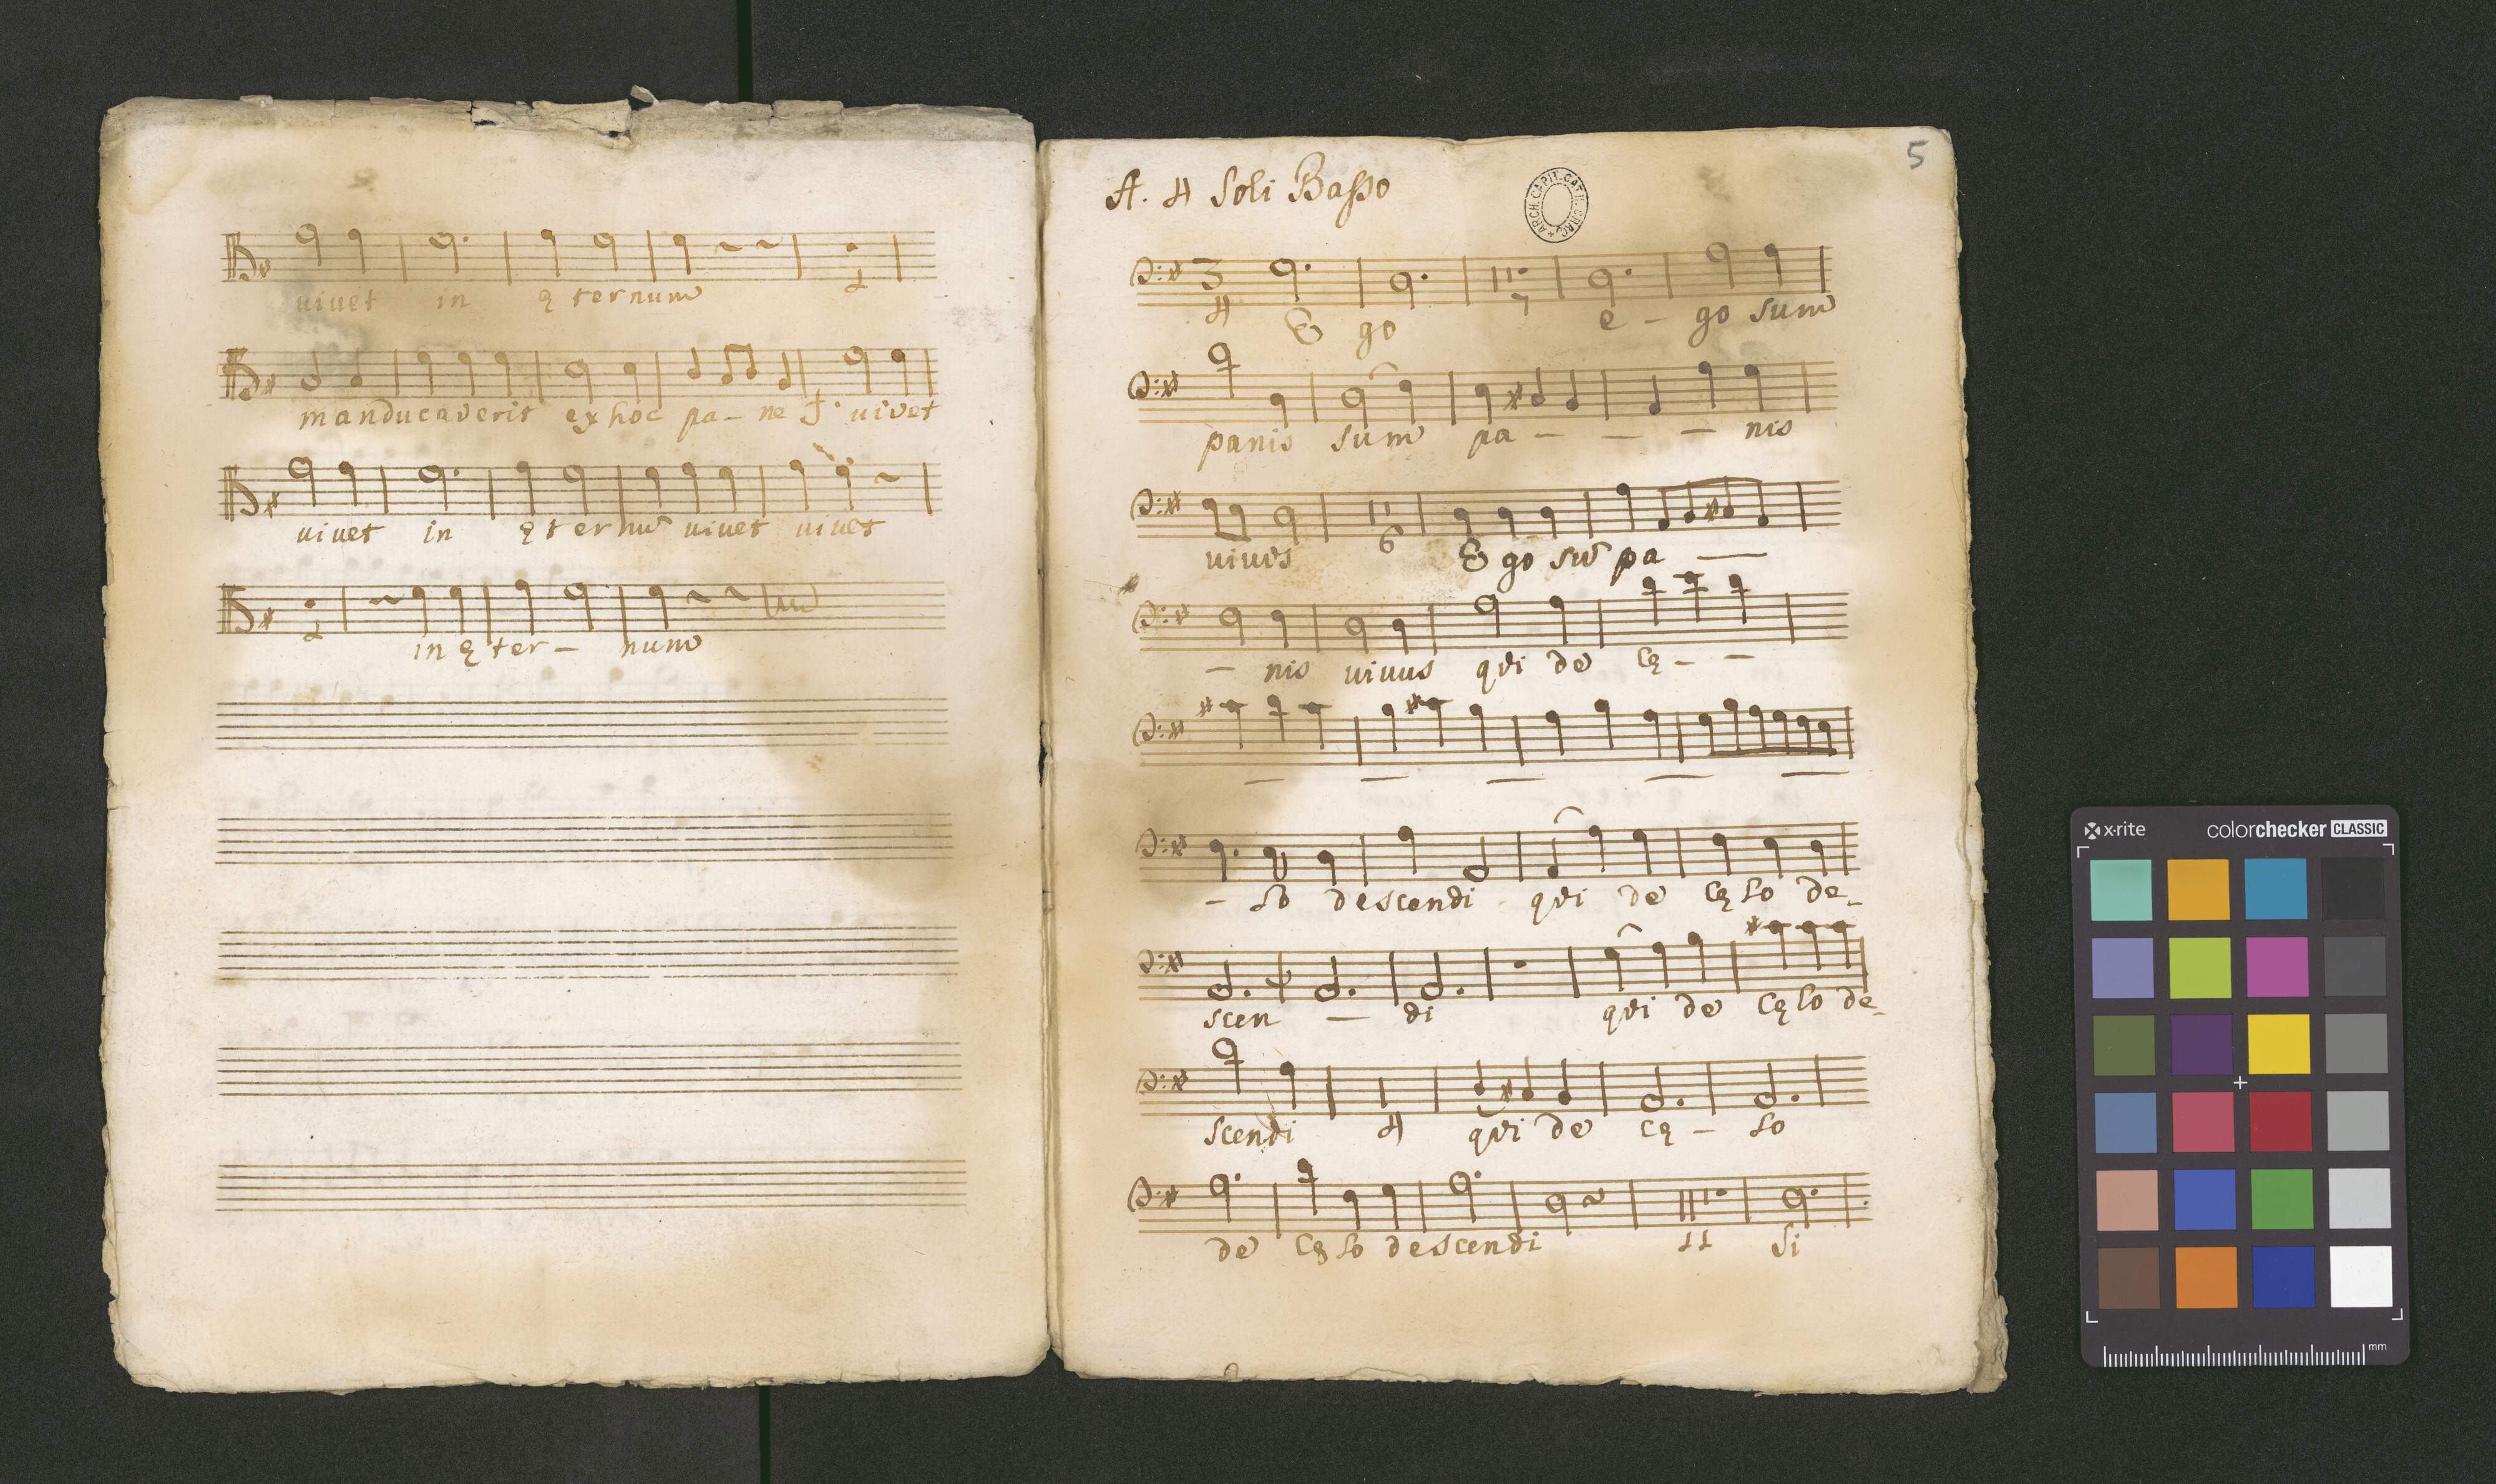 vivet in ęternum 2
manducaverit ex hoc pa- ne J. vivet
vivet in ęternũ vivet vivet
2 in ęter- num
5
A. 4 Soli Basso
ARCH. CAPIT. CATH. CRAC.
3 4 Ego 7 e - go sum
panis sum pa - - - nis
vivus 6 Ego sũ pa -
- nis vivus qui de cę- -
- lo descendi qui de cęlo de-
scen - di qui de cęlo de-
scendi 4 qui de cę - lo
de cęlo descendi 11 Si
x·rite colorchecker CLASSIC
mm